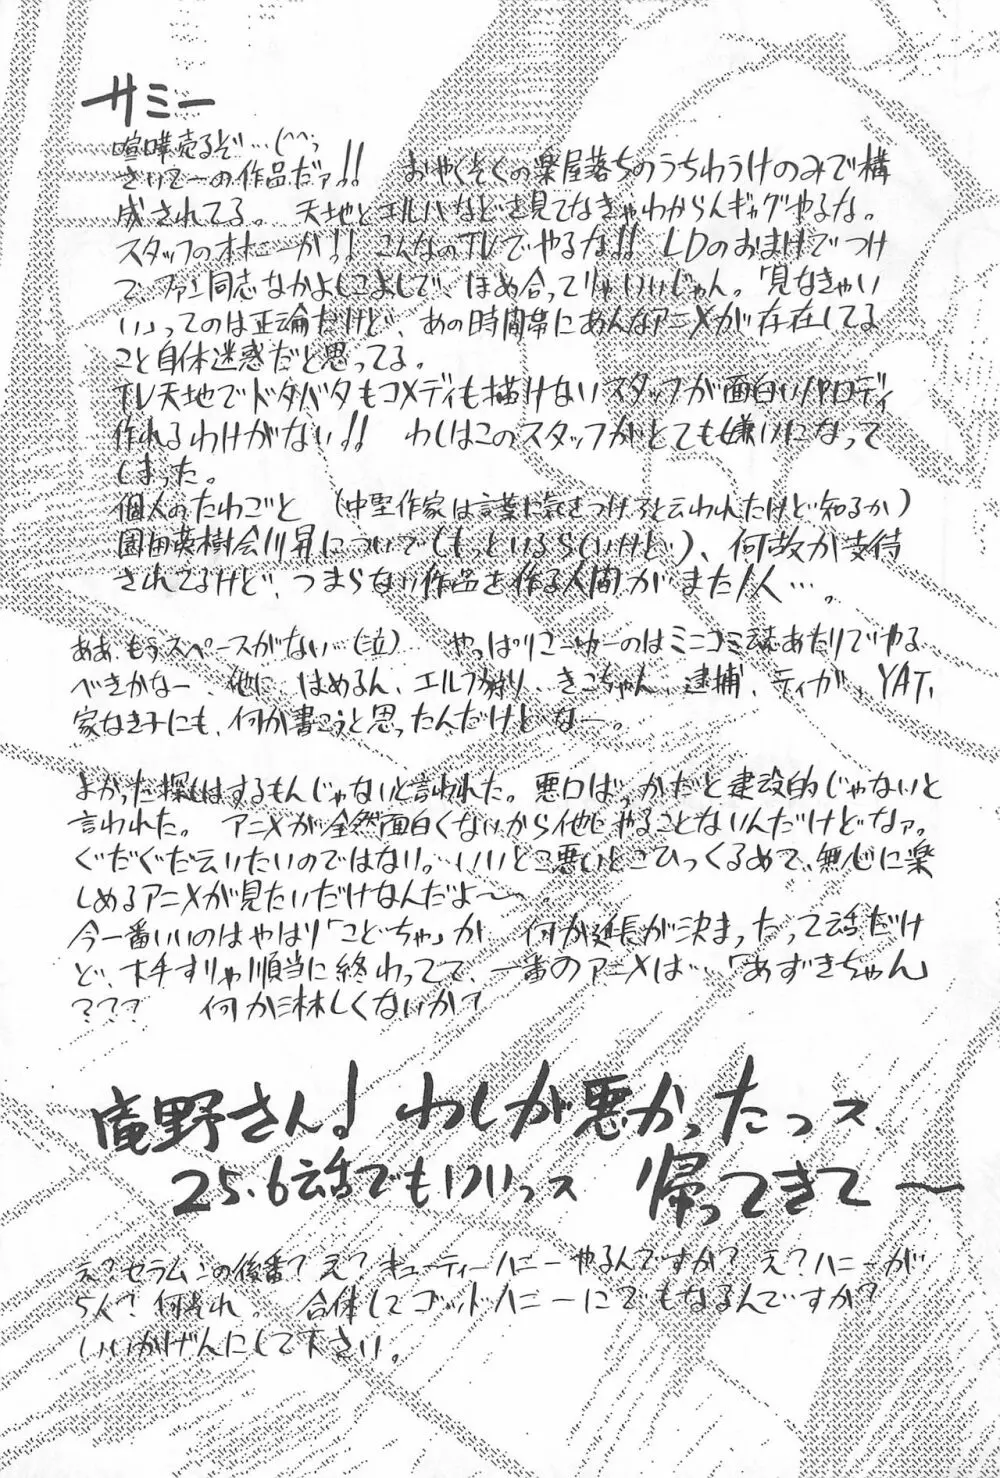 サミー
喧嘩売るぞ…(^^;
さいてーの作品だァ!! おやくそくの楽屋落ちのうちわうけのみで構
成されてる。 天地とエルハなどを見てなきゃわからんギャグやるな。
スタッフのオナニーか!! こんなのTVでやるな!! LDのおまけでつけ
て、ファン同志なかよしこよしで、ほめ合ってりゃいいじゃん。「見なきゃい
い」ってのは正論だけど、あの時間帯にあんなアニメが存在してる
こと自体迷惑だと思ってる。
TV天地でドタバタもコメディも描けないスタッフが面白いパロディ
作れるわけがない!! わしはこのスタッフがとても嫌いになって
しまった。
個人のたわごと (中堅作家は言葉に気をつけろと云われたけど知るか)
園田英樹会川昇について(もっといるらしいけど)、何故か支持
されてるけど、つまらない作品を作る人間がまた1人…。
ああ、もうスペースがない…(泣) やっぱりこーゆーのはミニコミ誌あたりでやる
べきかなー、他に はめるん、エルフ狩り、きこちゃん、逮捕、ティガ、YAT、
家なき子にも、何か書こうと思ったんだけどなー。
よかった探しはするもんじゃないと言われた。悪口ばっかだと建設的じゃないと
言われた。 アニメが全然面白くないから他にやることないんだけどなァ。
ぐだぐだ云いたいのではない。いいとこ悪いとこひっくるめて、無心に楽
しめるアニメが見たいだけなんだよ〜。
今一番いいのはやはり「こどちゃ」か 何か延長が決まったって話だけ
ど、ホチすりゃ順当に終わってて、一番のアニメは…「あずきちゃん」
??? 何か淋しくないか?
庵野さん! わしが悪かったっス
25.6話でもいいっス 帰ってきて〜
え?セラムンの後番?え?キューティーハニーやるんですか?え?ハニーが
5人?何それ。 合体してゴッドハニーにでもなるんですか?
いいかげんにして下さい。